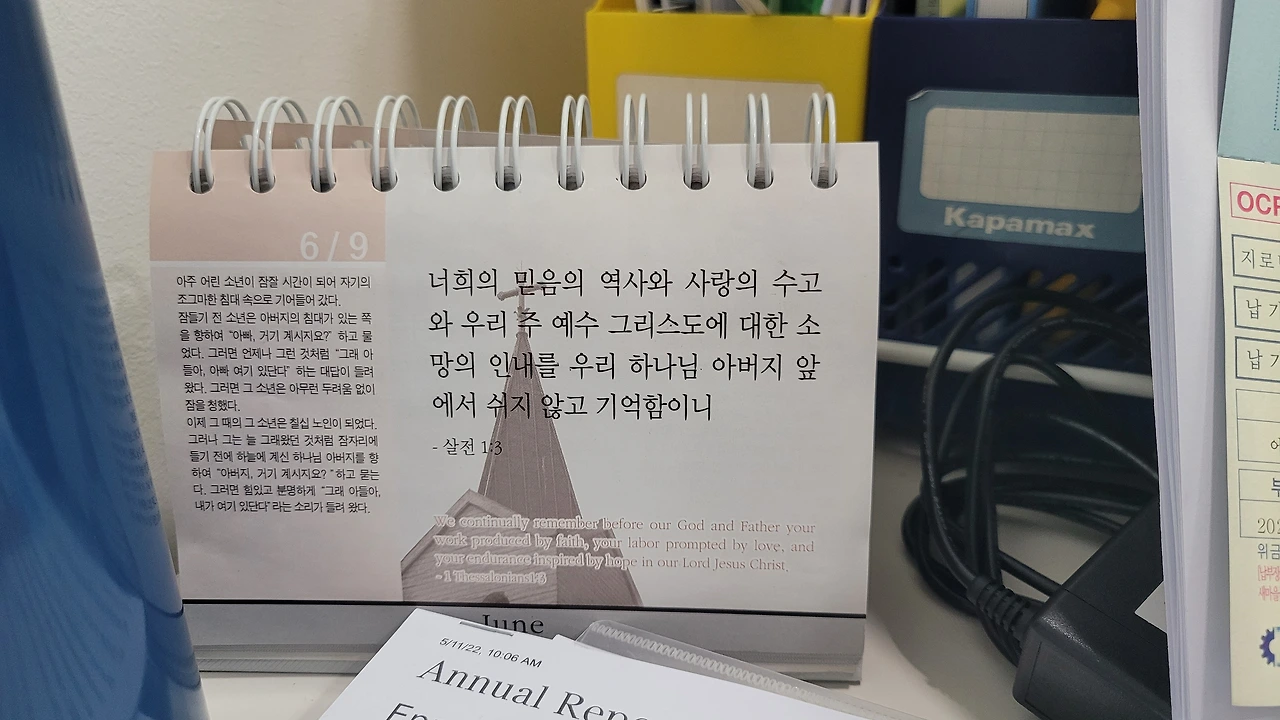 6/9
아주 어린 소년이 잠잘 시간이 되어 자기의
조그마한 침대 속으로 기어들어 갔다.
잠들기 전 소년은 아버지의 침대가 있는 쪽
을 향하여 "아빠, 거기 계시지요?" 하고 물
었다. 그러면 언제나 그런 것처럼 "그래 아
들아, 아빠 여기 있단다" 하는 대답이 들려
왔다. 그러면 그 소년은 아무런 두려움 없이
잠을 청했다.
이제 그 때의 그 소년은 칠십 노인이 되었다.
그러나 그는 늘 그래왔던 것처럼 잠자리에
들기 전에 하늘에 계신 하나님 아버지를 향
하여 "아버지, 거기 계시지요?" 하고 묻는
다. 그러면 힘있고 분명하게 "그래 아들아,
내가 여기 있단다" 라는 소리가 들려 왔다.
너희의 믿음의 역사와 사랑의 수고
와 우리 주 예수 그리스도에 대한 소
망의 인내를 우리 하나님 아버지 앞
에서 쉬지 않고 기억함이니
- 살전 1:3
We continually remember before our God and Father your
work produced by faith, your labor prompted by love, and
your endurance inspired by hope in our Lord Jesus Christ.
- 1 Thessalonians1:3
June
5/11/22, 10:06 AM
Annual
Kapamax
지로
납 기
납 기